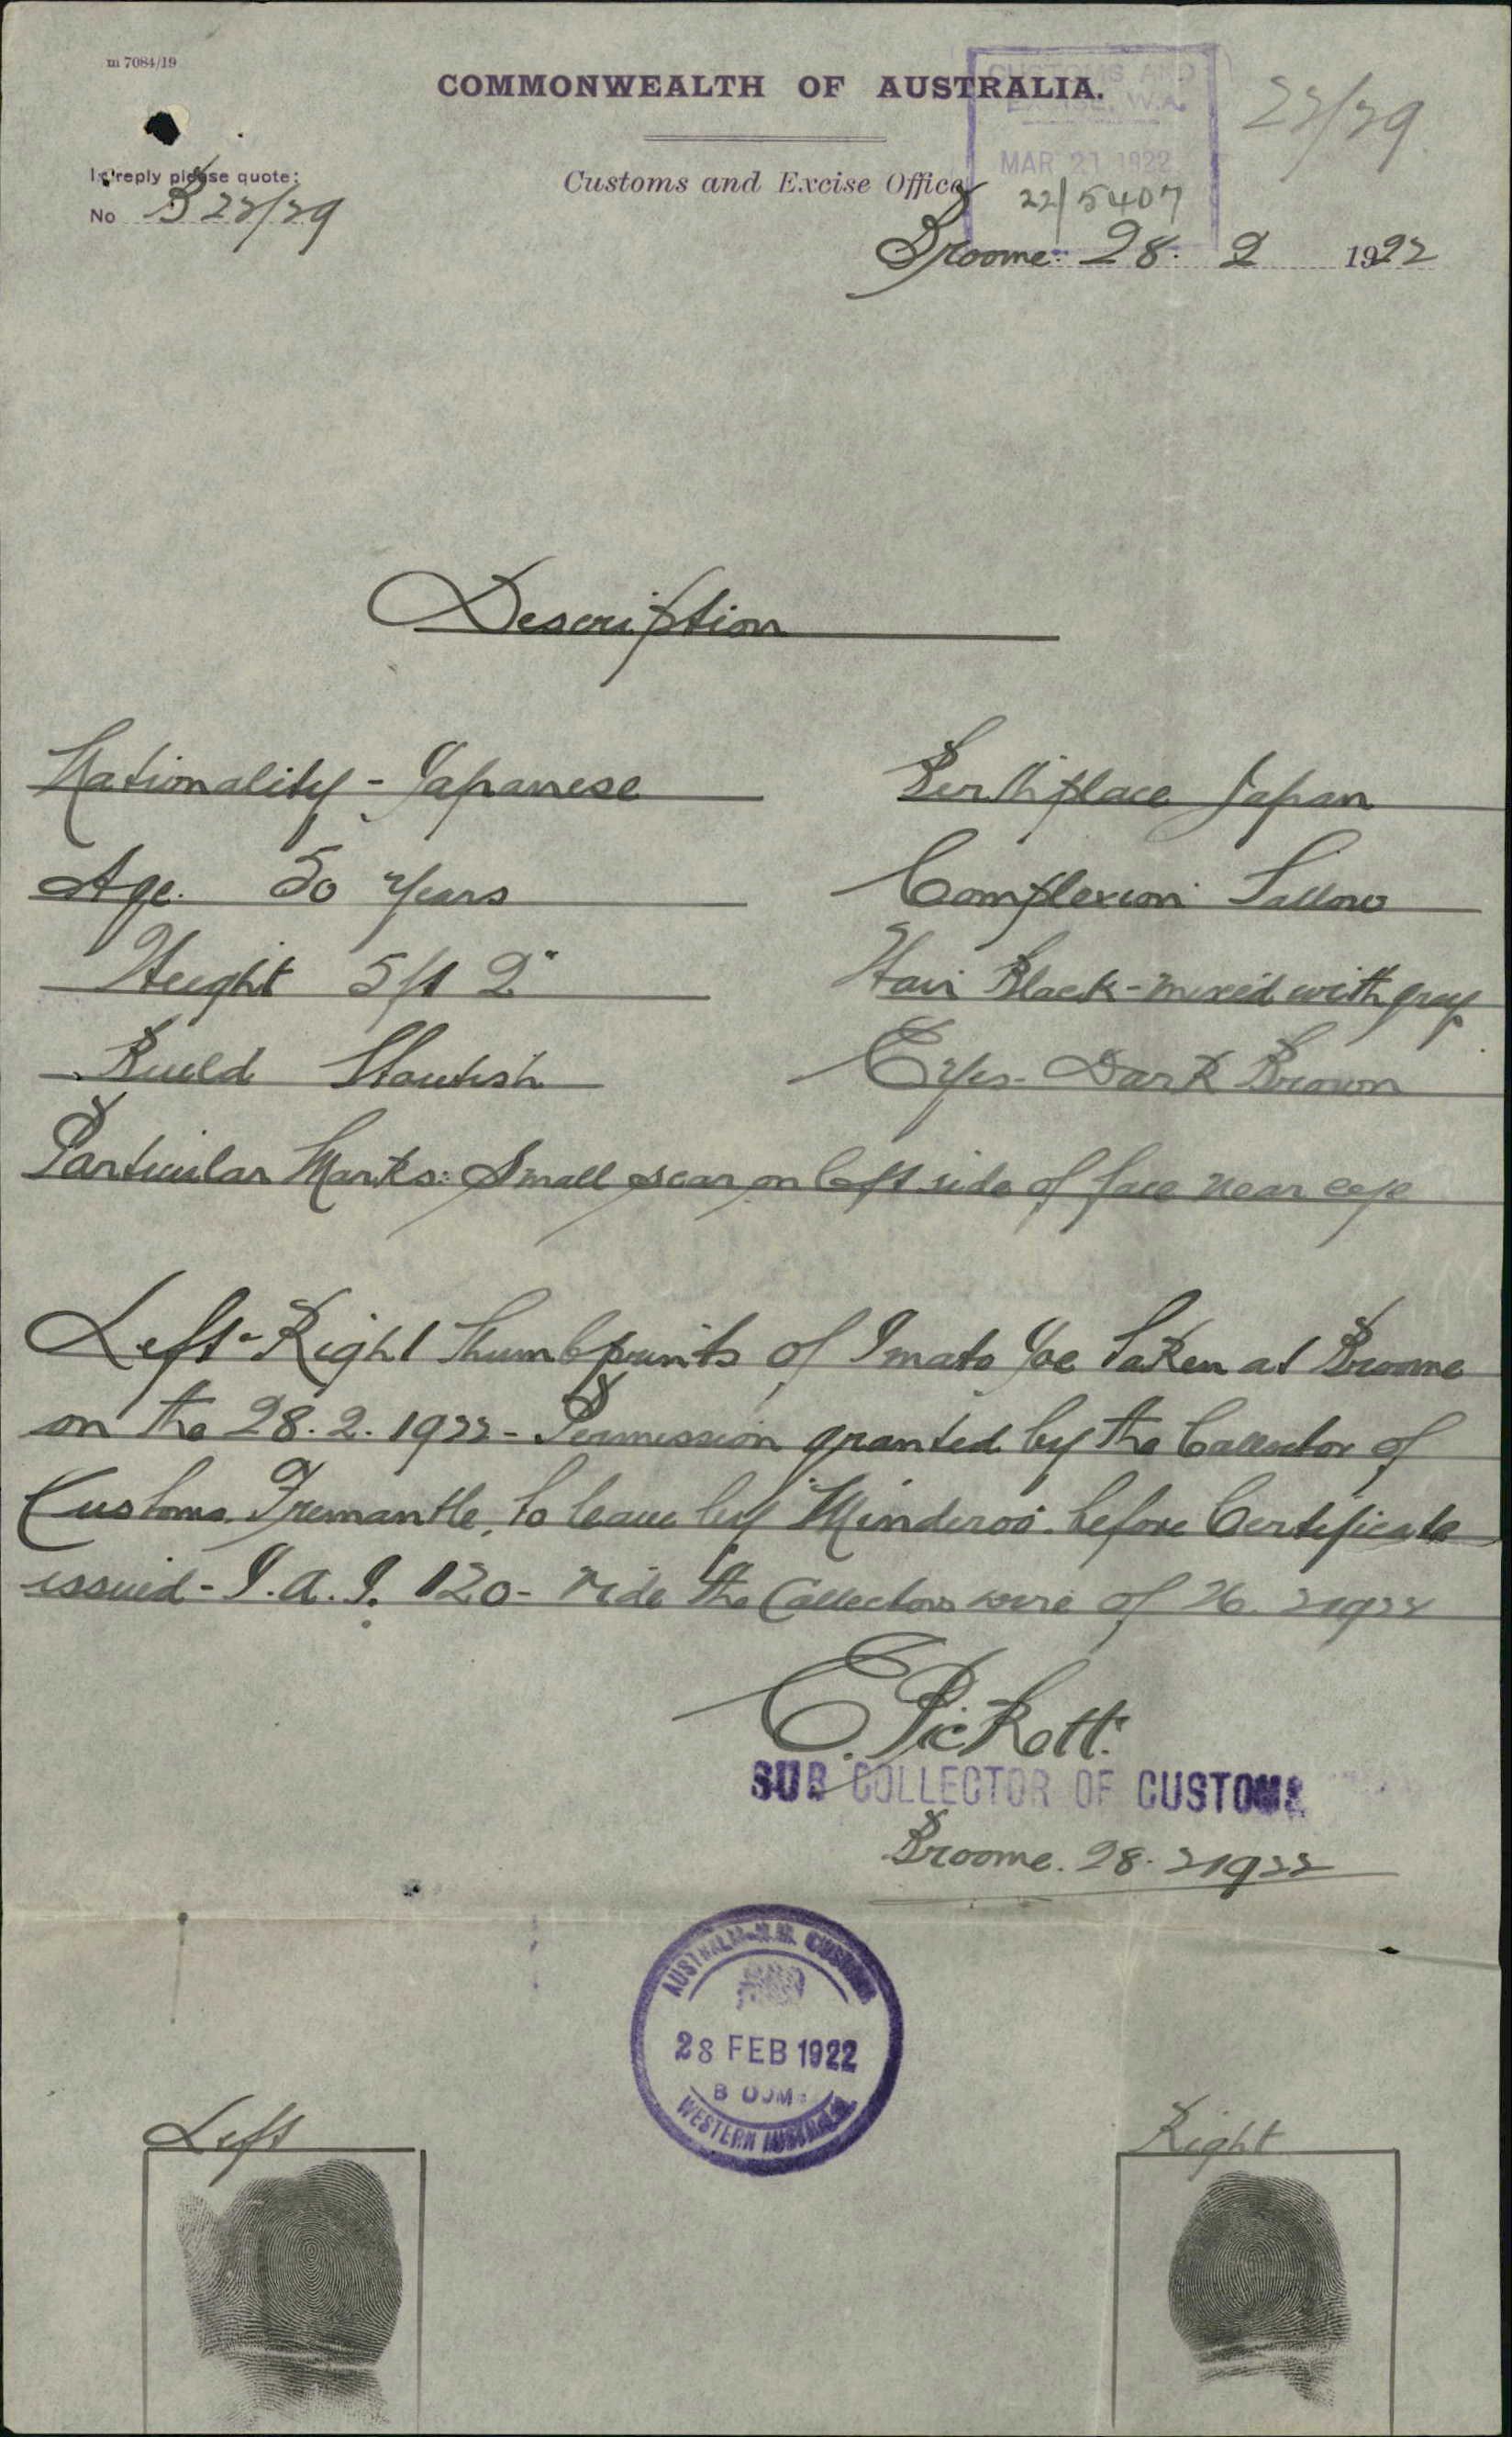 m 7084/19
COMMONWEALTH OF AUSTRALIA.
CUSTOMS AND
EXCISE, W.A.
MAR 21 1922
22/5407
22/29
In reply please quote:
No B 22/29
Customs and Excise Office
Broome: 28. 2 1922
Description
Nationality - Japanese
Birthplace Japan
Age. 50 Years
Complexion Sallow
Height 5ft 2"
Hair Black - mixed with grey
Build Stoutish
Eyes - Dark Brown
Particular Marks: Small scar on left side of face near eye
Left - Right Thumbprints of Imato Yoe Taken at Broome
on the 28. 2. 1922 - Permission granted by the Collector of
Customs Fremantle, to leave by "Minderoo" before Certificate
issued - I.A.I. 120 - vide the Collectors wire of 26. 2 1922
E. Pickett.
SUB COLLECTOR OF CUSTOMS
Broome. 28. 2 1922
AUSTRALIA - H.M. CUSTOMS
28 FEB 1922
B OOM
WESTERN AUSTRALIA
Left
Right